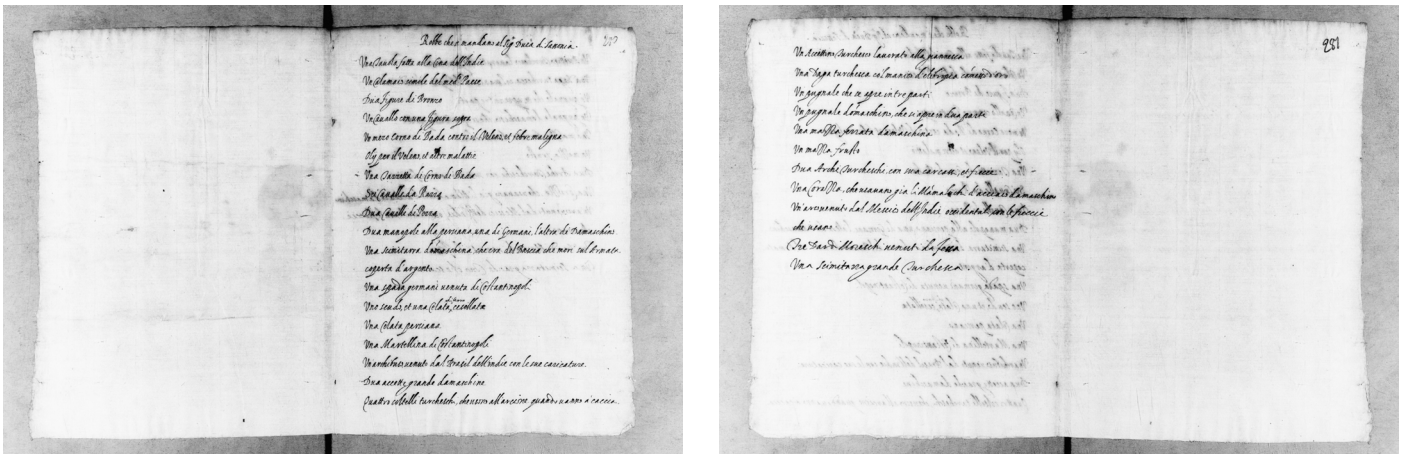 Robbe che si mandano al Sig. Duca di Sauoia
280
Vna Tauola fatta alla Cina dell'Indie
Vn Calamaio simile del med.º Paese
Dua figure di Bronzo
Vn Cauallo con una figura sopra
Vn mezo Corno di Bada contr'il Veleno, et febre maligna
Olij per il Veleno et altre malattie
Vna Tazzetta di Corno di Bada
Sei Caualle da Razza
Dua Caualli di
Dua manopole alla persiana, una di Germani, l'altra di Damaschino
Vna Scimitarra damaschina, che era del Bascia che morì sul Armata
coperta d'argento
Vna spada germani uenuta di Costantinopoli
Vno scudo, et una Celata cesellata
Vna Celata persiana
Vna Martellina di Costantinopoli
Vn archibuso uenuto dal Brasil dell'indie con le sue caricature
Dua accette grande damaschine
Quattro coltelle turchesche, che usono allarcione quando uanno a caccia
281
Vn Accettino Turchesco lauorato alla
Vna Daga turchesca col manico d'elitropia comesso d'oro
Vn pugnale che se apre in tre parti
Vn pugnale damaschino, che si apre in dua parti
Vna mazza ferrata damaschina
Vn mazza frusto
Dua Archi Turcheschi, con sua carcassi, et freccie
Vna Corazza, che usauano gia li Mamaluchi d'acciaio damaschino
Vn arco uenuto dal Messico dell'Indie occidentali con le freccie
che usano
Tre Dardi Moreschi uenuti da fessa
Vna Scimitarra grande Turchesca.